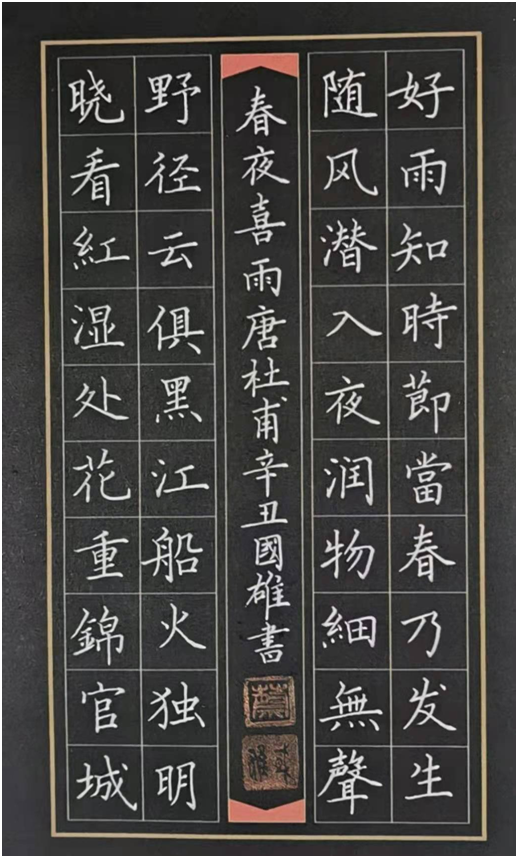 好雨知時節當春乃发生
随风潜入夜润物細無聲
春夜喜雨唐杜甫辛丑國雄書
野径云俱黑江船火独明
晓看紅湿处花重錦官城